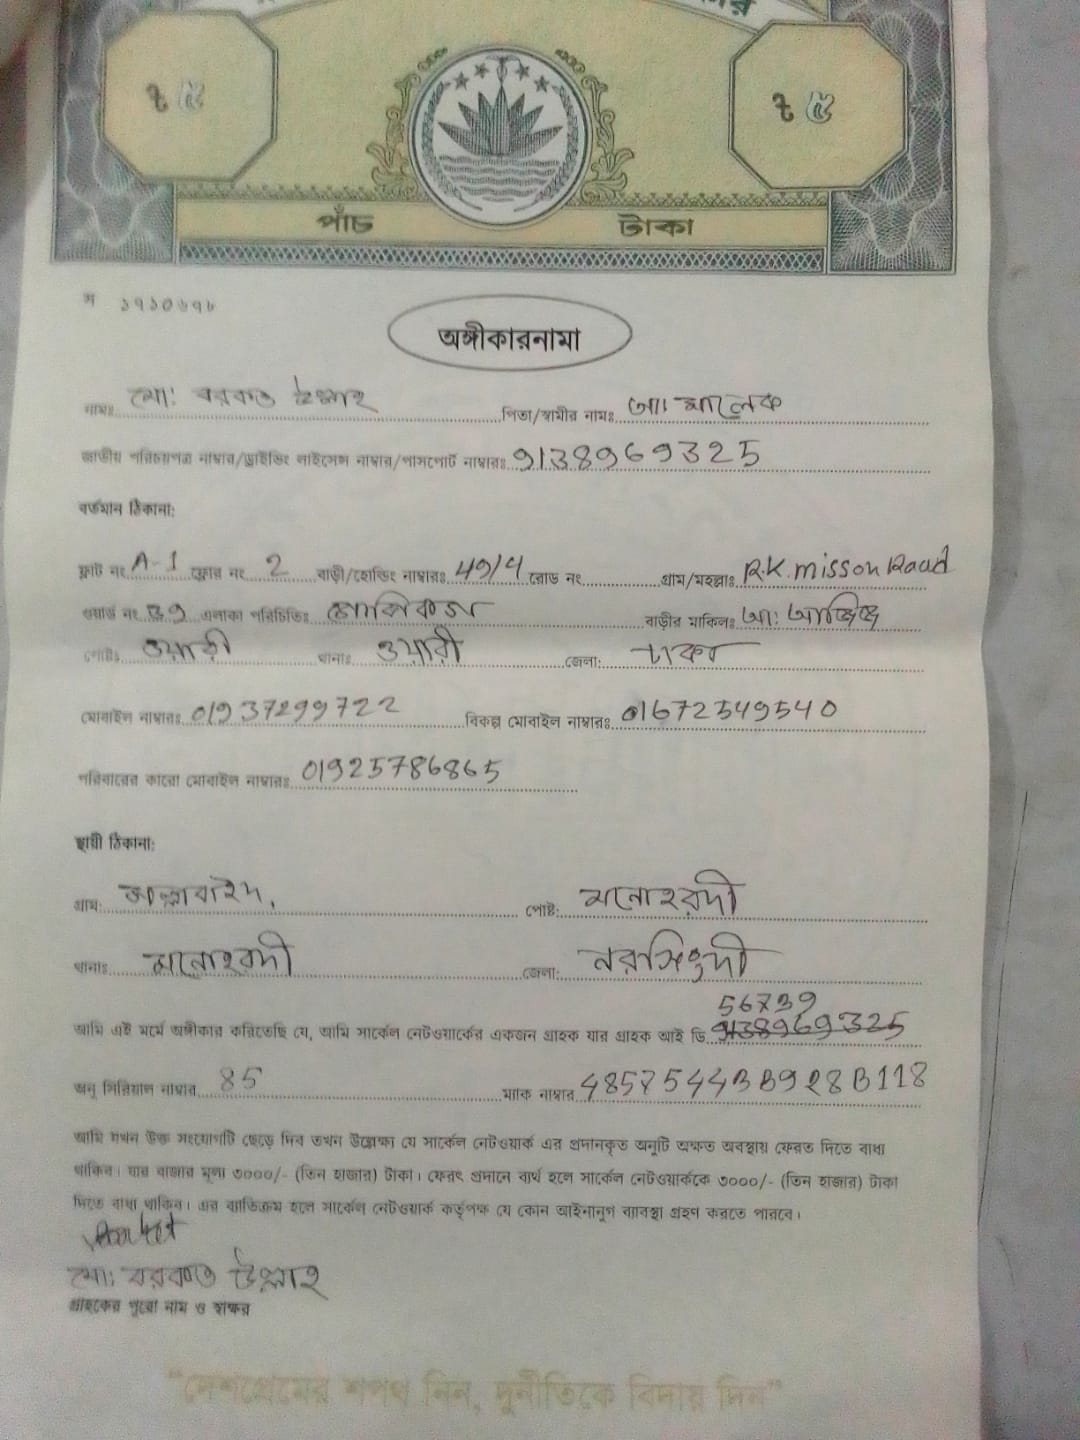 ৳ ৫ ৳ ৫
পাঁচ টাকা
স ১৭১০৬৭৮
অঙ্গীকারনামা
নামঃ মো: বরকত উল্লাহ পিতা/স্বামীর নামঃ আঃ মালেক
জাতীয় পরিচয়পত্র নাম্বার/ড্রাইভিং লাইসেন্স নাম্বার/পাসপোর্ট নাম্বারঃ 9138969325
বর্তমান ঠিকানা:
ফ্লাট নং A-1 ফ্লোর নং 2 বাড়ী/হোল্ডিং নাম্বারঃ 49/4 রোড নং গ্রাম/মহল্লাঃ R.K. misson Raad
ওয়ার্ড নং 39 এলাকা পরিচিতিঃ বাড়ীর মালিকঃ আ: আজিজ
পোষ্টঃ ওয়াড়ী থানাঃ ওয়ারী জেলা: ঢাকা
মোবাইল নাম্বারঃ 01937299722 বিকল্প মোবাইল নাম্বারঃ 01672549540
পরিবারের কারো মোবাইল নাম্বারঃ 01925786865
স্থায়ী ঠিকানা:
গ্রাম: পোষ্ট: মনোহরদী
থানাঃ মনোহরদী জেলা: নরসিংদী
56739
আমি এই মর্মে অঙ্গীকার করিতেছি যে, আমি সার্কেল নেটওয়ার্কের একজন গ্রাহক যার গ্রাহক আই ডি 9138969325
অনু সিরিয়াল নাম্বার 85 ম্যাক নাম্বার 48575443B928B118
আমি যখন উক্ত সংযোগটি ছেড়ে দিব তখন উল্লেখ্য যে সার্কেল নেটওয়ার্ক এর প্রদানকৃত অনুটি অক্ষত অবস্থায় ফেরত দিতে বাধ্য
থাকিব। যার বাজার মূল্য ৩০০০/- (তিন হাজার) টাকা। ফেরৎ প্রদানে ব্যর্থ হলে সার্কেল নেটওয়ার্ককে ৩০০০/- (তিন হাজার) টাকা
দিতে বাধ্য থাকিব। এর ব্যতিক্রম হলে সার্কেল নেটওয়ার্ক কর্তৃপক্ষ যে কোন আইনানুগ ব্যবস্থা গ্রহণ করতে পারবে।
মো: বরকত উল্লাহ
গ্রাহকের পুরো নাম ও স্বাক্ষর
"দেশপ্রেমের শপথ নিন, দুর্নীতিকে বিদায় দিন"